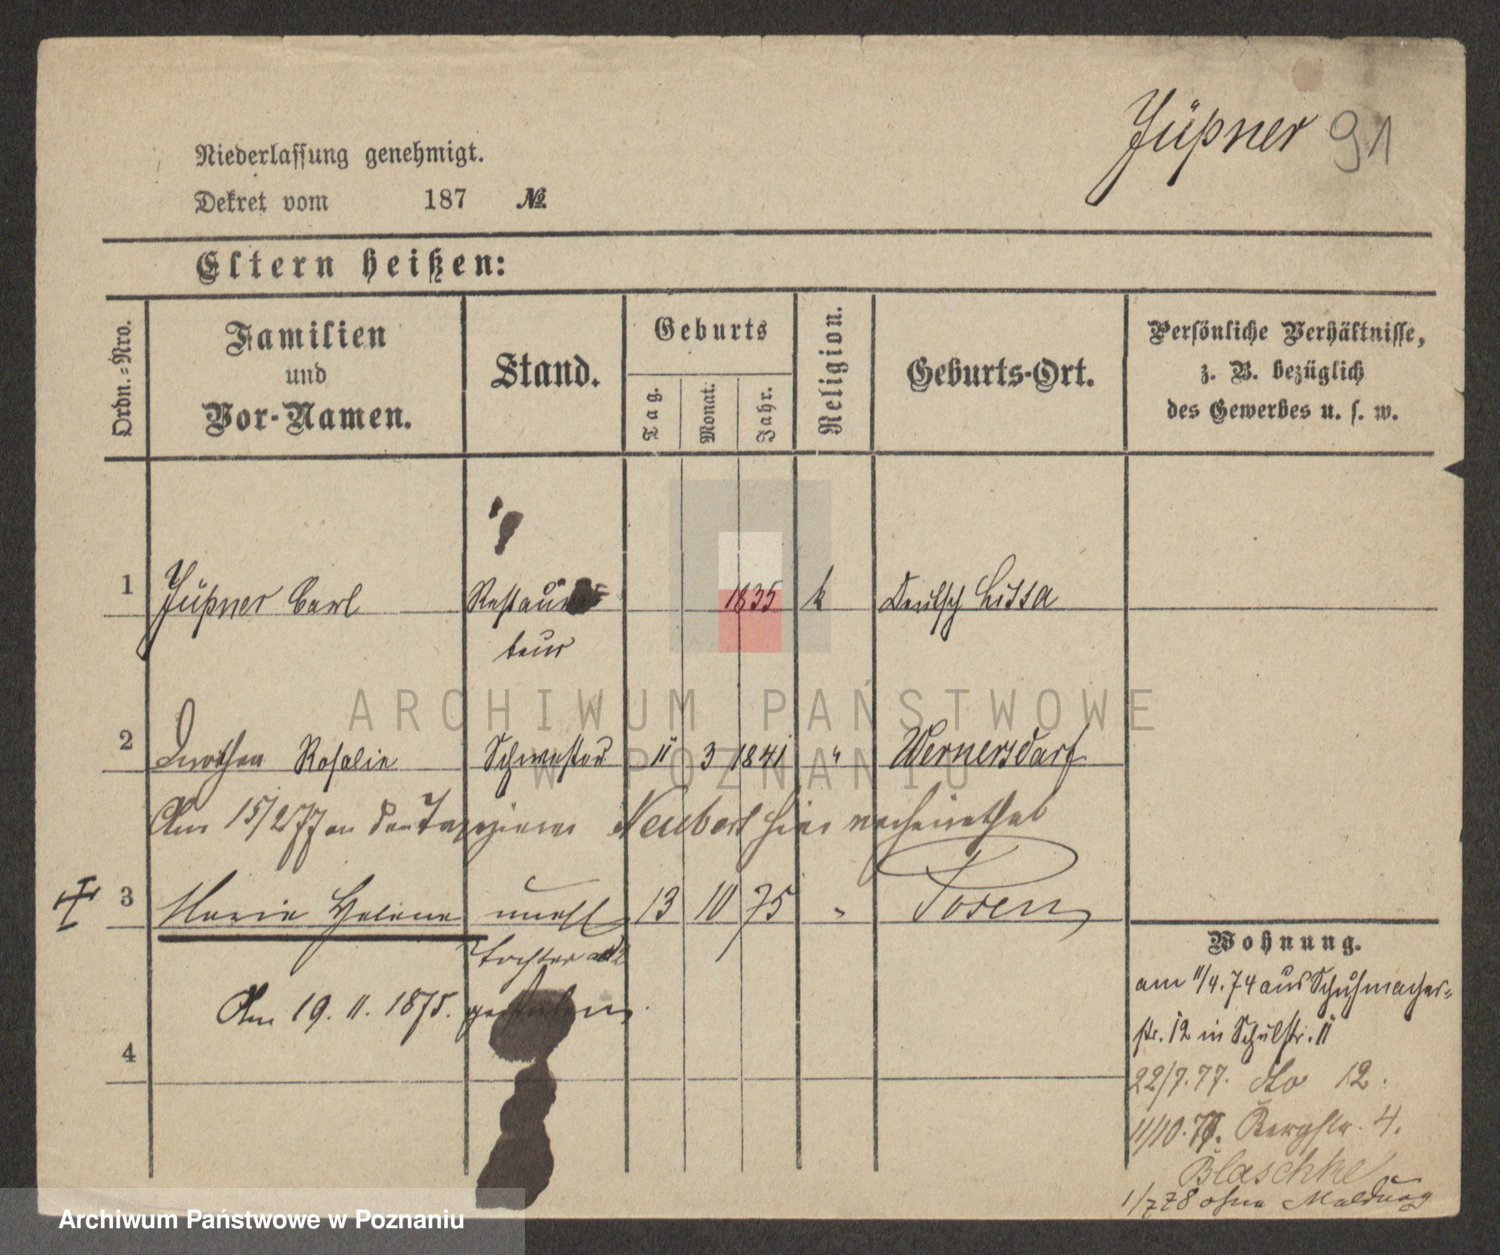 Jüpner 91
Niederlassung genehmigt.
Dekret vom 187 №
Eltern heißen:
Ordn.-Nro.
Familien
und
Vor-Namen.
Stand.
Geburts
Tag.
Monat.
Jahr.
Religion.
Geburts-Ort.
Persönliche Verhältnisse,
z. B. bezüglich
des Gewerbes u. s. w.
1 Jüpner Carl Restaura 1835 k Deutsch Lissa
teur
ARCHIWUM PAŃSTWOWE
W POZNANIU
2 Dorothea Rosalie Schwester 11 3 1841 " Wernersdorf
Am 15/2 77 an den Tapezierer Neubert hier verheirathet
3 Marie Helene unehl 13 10 75 " Posen
Tochter ad 2
Am 19. 11. 1875. gestorben.
4
Wohnung.
am 11/4. 74 aus Schuhmacher-
str. 12 in Schulstr. 11
22/7. 77. do 12.
11/10. 77. Bergstr. 4.
Blaschke
1/7 78 ohne Meldung
Archiwum Państwowe w Poznaniu